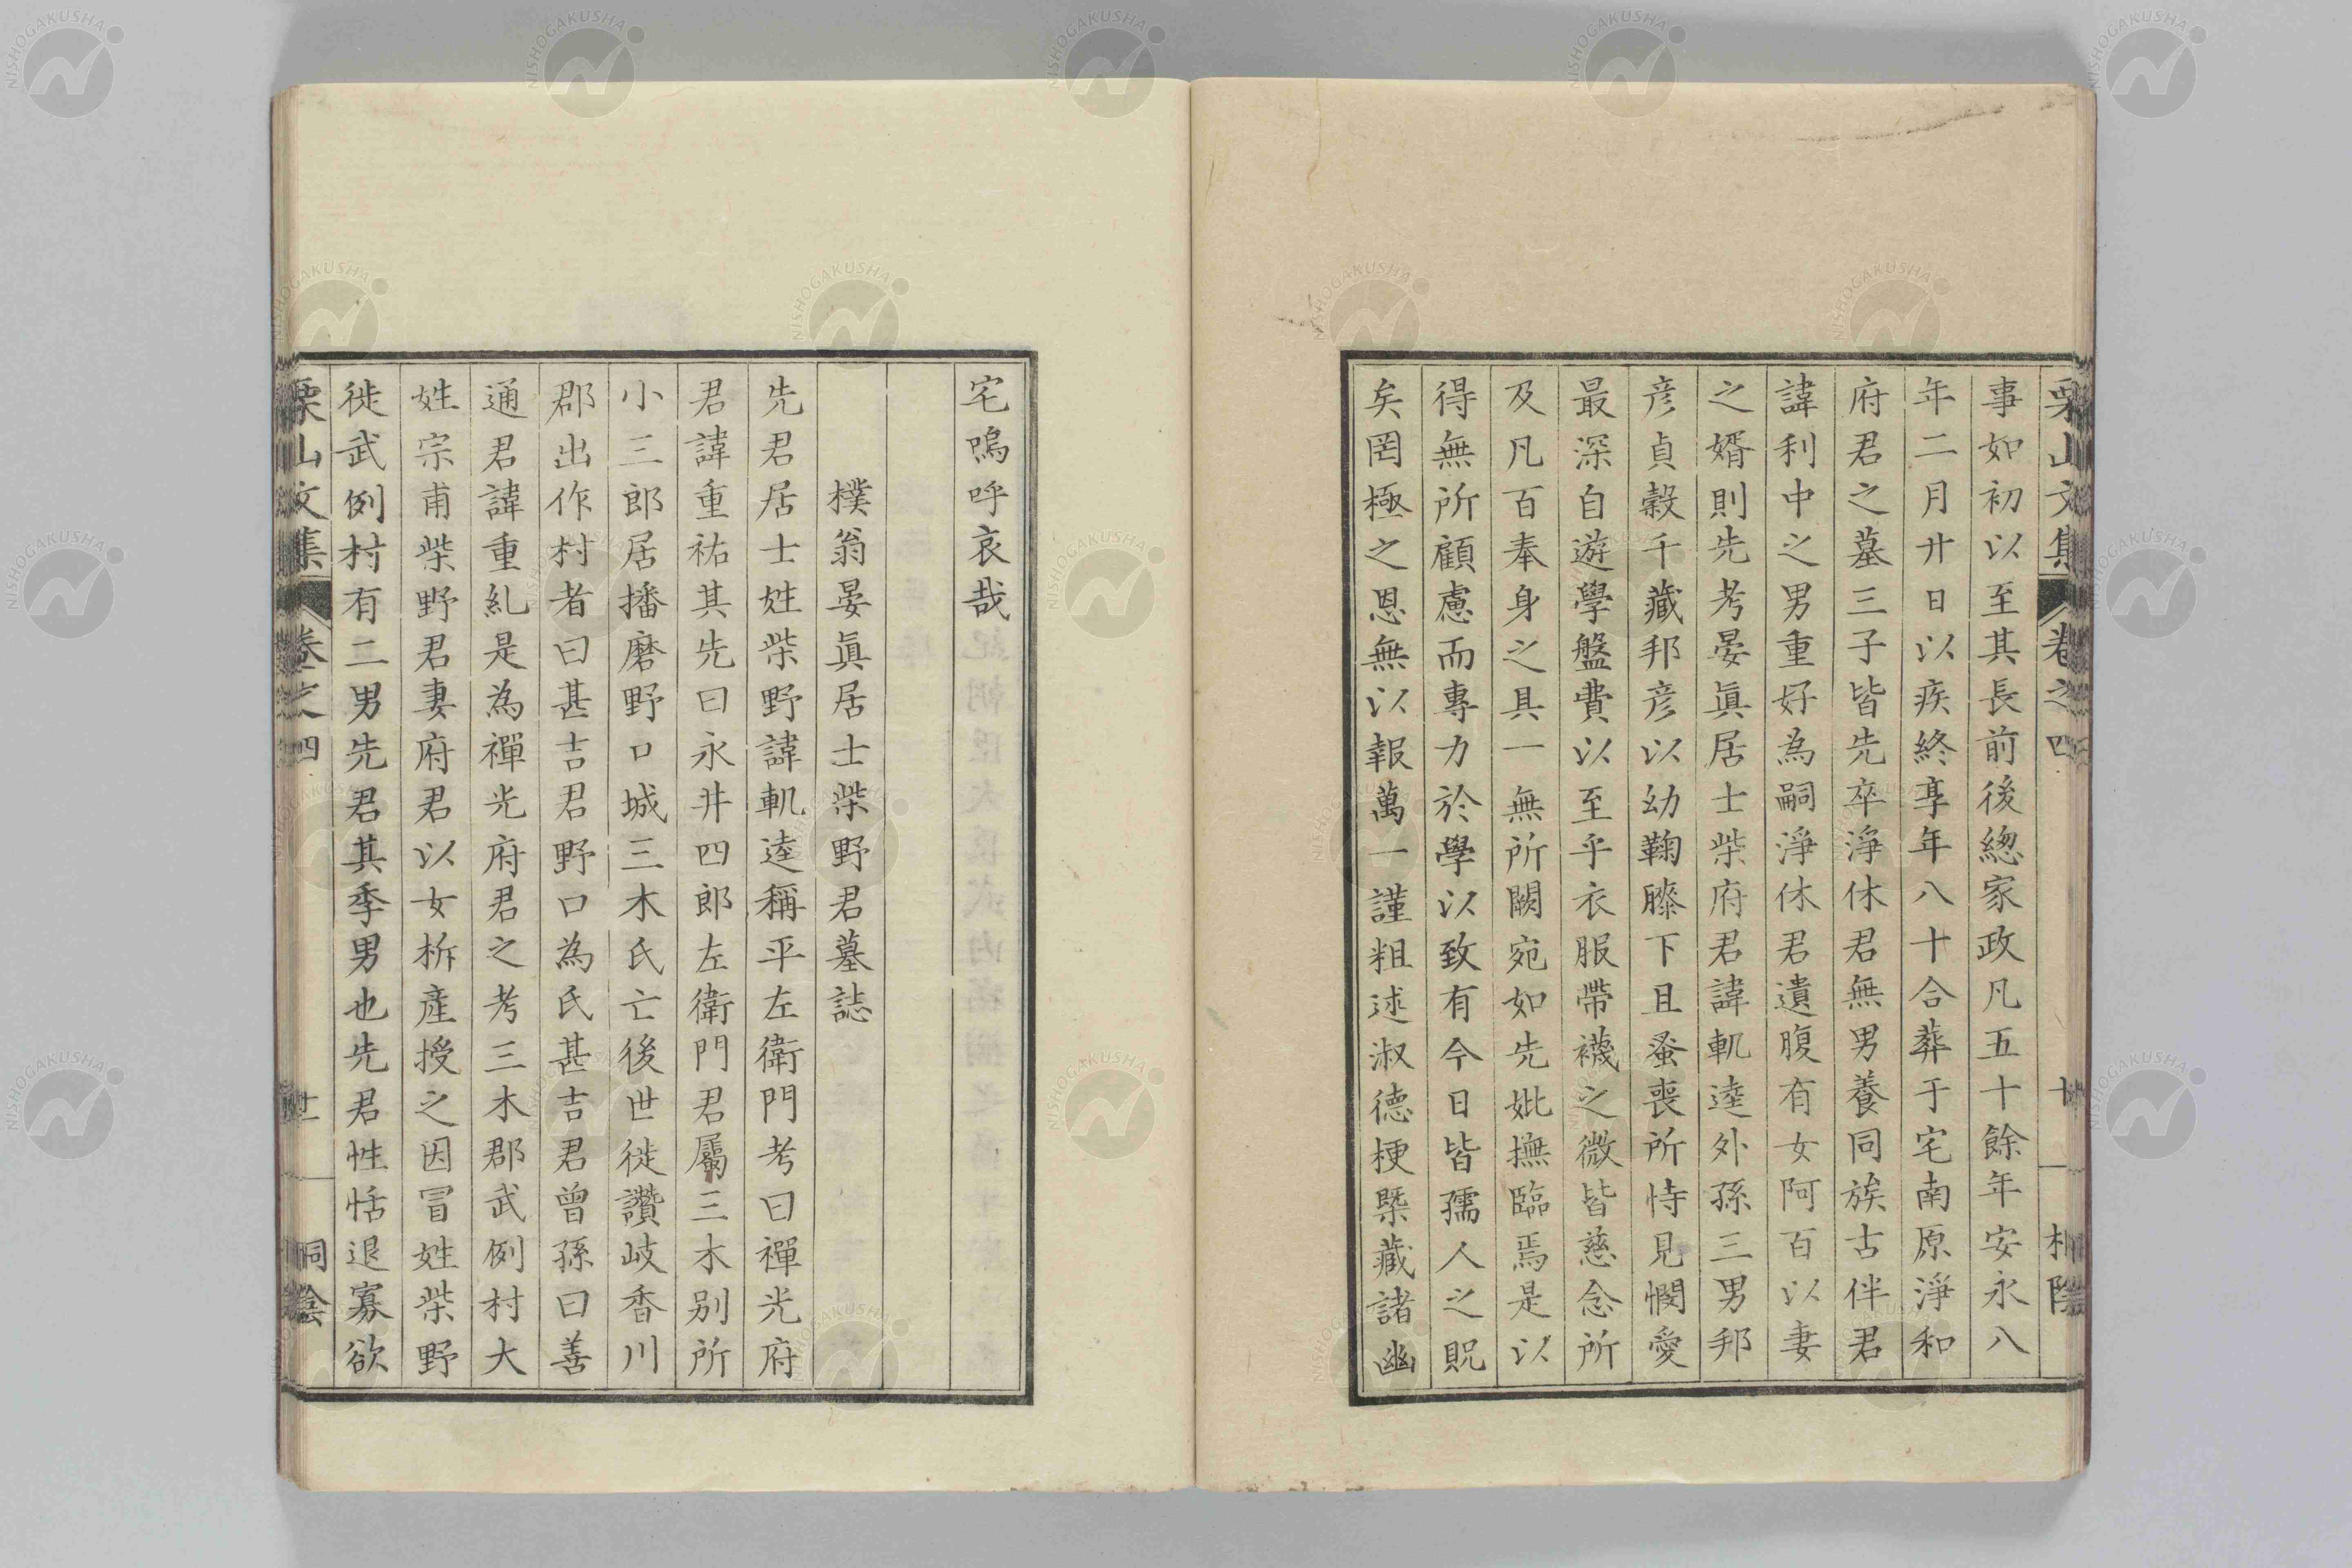 栗山文集 卷之四 十 桐陰
事如初以至其長前後緫家政凡五十餘年安永八
年二月廿日以疾終享年八十合葬于宅南原淨和
府君之墓三子皆先卒淨休君無男養同族古伴君
諱利中之男重好為嗣淨休君遺腹有女阿百以妻
之婿則先考晏眞居士柴府君諱軌逵外孫三男邦
彦貞穀千藏邦彦以幼鞠膝下且蚤喪所恃見憫愛
最深自遊學盤費以至乎衣服帶襪之微皆慈念所
及凡百奉身之具一無所闕宛如先妣撫臨焉是以
得無所顧慮而專力於學以致有今日皆孺人之貺
矣罔極之恩無以報萬一謹粗述淑德梗槩藏諸幽
宅嗚呼哀哉
樸翁晏眞居士柴野君墓誌
先君居士姓柴野諱軌逵稱平左衛門考曰禪光府
君諱重祐其先曰永井四郎左衛門君屬三木别所
小三郎居播磨野口城三木氏亡後世徙讚岐香川
郡出作村者曰甚吉君野口為氏甚吉君曾孫曰善
通君諱重糺是為禪光府君之考三木郡武例村大
姓宗甫柴野君妻府君以女析產授之因冒姓柴野
徙武例村有二男先君其季男也先君性恬退寡欲
栗山文集 卷之四 桐陰